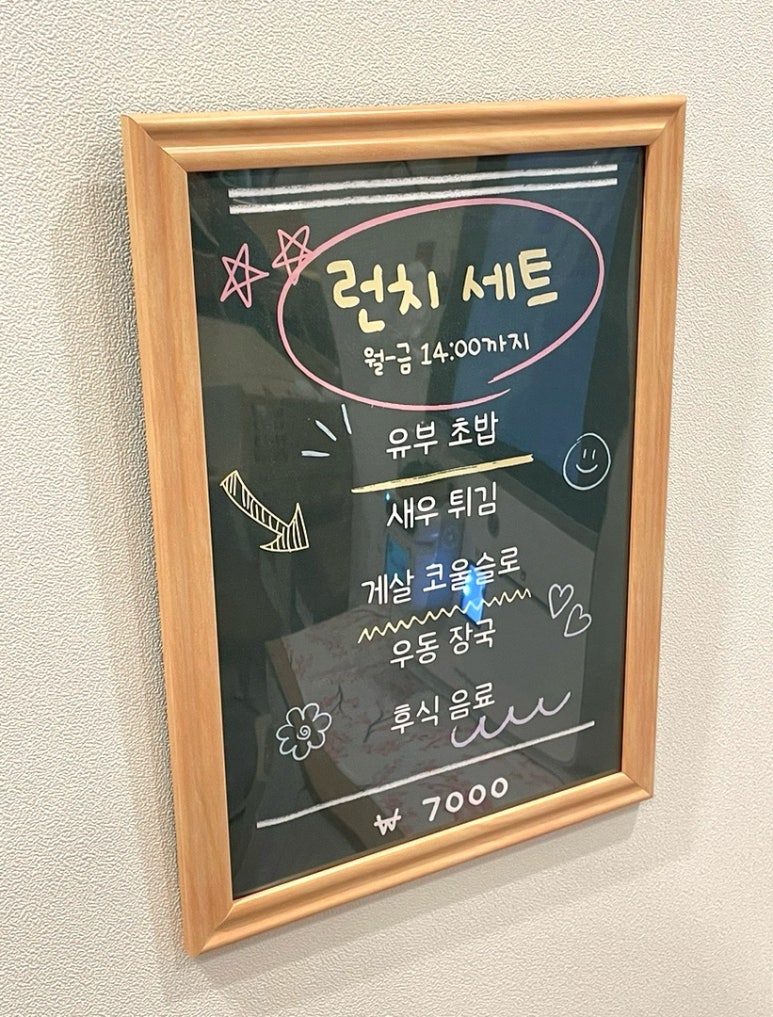 런치 세트
월-금 14:00까지
유부 초밥
새우 튀김
게살 코울슬로
우동 장국
후식 음료
₩ 7000